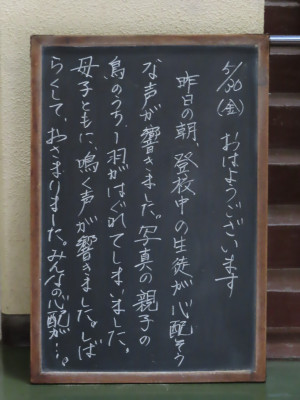 5/30(金) おはようございます
昨日の朝、登校中の生徒が心配そう
な声が響きました。写真の親子の
鳥のうち一羽がはぐれてしまいました。
母子ともに、鳴く声が響きました。しば
らくして、おさまりました。みんなの心配が…。